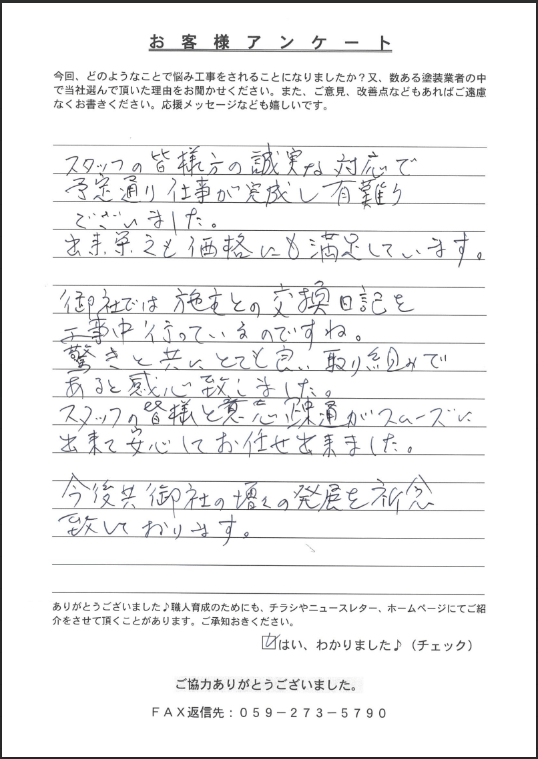 お客様アンケート
今回、どのようなことで悩み工事をされることになりましたか？又、数ある塗装業者の中
で当社選んで頂いた理由をお聞かせください。また、ご意見、改善点などもあればご遠慮
なくお書きください。応援メッセージなども嬉しいです。
スタッフの皆様方の誠実な対応で
予定通り仕事が完成し有難う
ございました。
出来栄えも価格にも満足しています。
御社では施主との交換日記を
工事中行っているのですね。
驚きと共にとても良い取り組みで
あると感心致しました。
スタッフの皆様と意志疎通がスムーズに
出来て安心してお任せ出来ました。
今後共御社の増々の発展を祈念
致しております。
ありがとうございました♪職人育成のためにも、チラシやニュースレター、ホームページにてご紹
介をさせて頂くことがあります。ご承知おきください。
☑はい、わかりました♪（チェック）
ご協力ありがとうございました。
ＦＡＸ返信先：０５９－２７３－５７９０